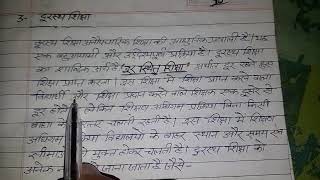 3- दूरस्थ शिक्षा
दूरस्थ शिक्षा अनौपचारिक शिक्षा की आधुनिक प्रणाली है। यह
एक बहुआयामी और उद्देश्यपूर्ण प्रक्रिया है। दूरस्थ शिक्षा
का शाब्दिक अर्थ है "दूर स्थित शिक्षा" अर्थात दूर रहते हुए
शिक्षा प्राप्त करना। इस शिक्षा में शिक्षा प्राप्त करने वाला
विद्यार्थी और शिक्षा प्रदान करने वाले शिक्षक एक दूसरे से
दूर होते है लेकिन शिक्षण अधिगम प्रक्रिया बिना किसी
बाधा के निरंतर चलती रहती है। इस शिक्षा में शिक्षण
अधिगम विद्यालयों के बाहर स्थान और समय की
सीमाओं से मुक्त होकर चलती है। दूरस्थ शिक्षा को
अनेक से जाना जाता है जैसे-